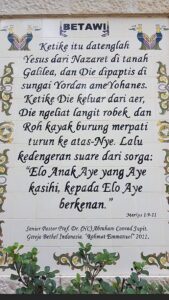 BETAWI
Ketike itu datenglah
Yesus dari Nazaret di tanah
Galilea, dan Die dipaptis di
sungai Yordan ame Yohanes.
Ketike Die keluar dari aer,
Die ngeliat langit robek dan
Roh kayak burung merpati
turun ke atas-Nye. Lalu
kedengeran suare dari sorga:
"Elo Anak Aye yang Aye
kasihi, kepada Elo Aye
berkenan."
Markus 1:9-11
Senior Pastor Prof. Dr. (HC) Abraham Conrad Supit.
Gereja Bethel Indonesia. "Rahmat Emmanuel" 2022.